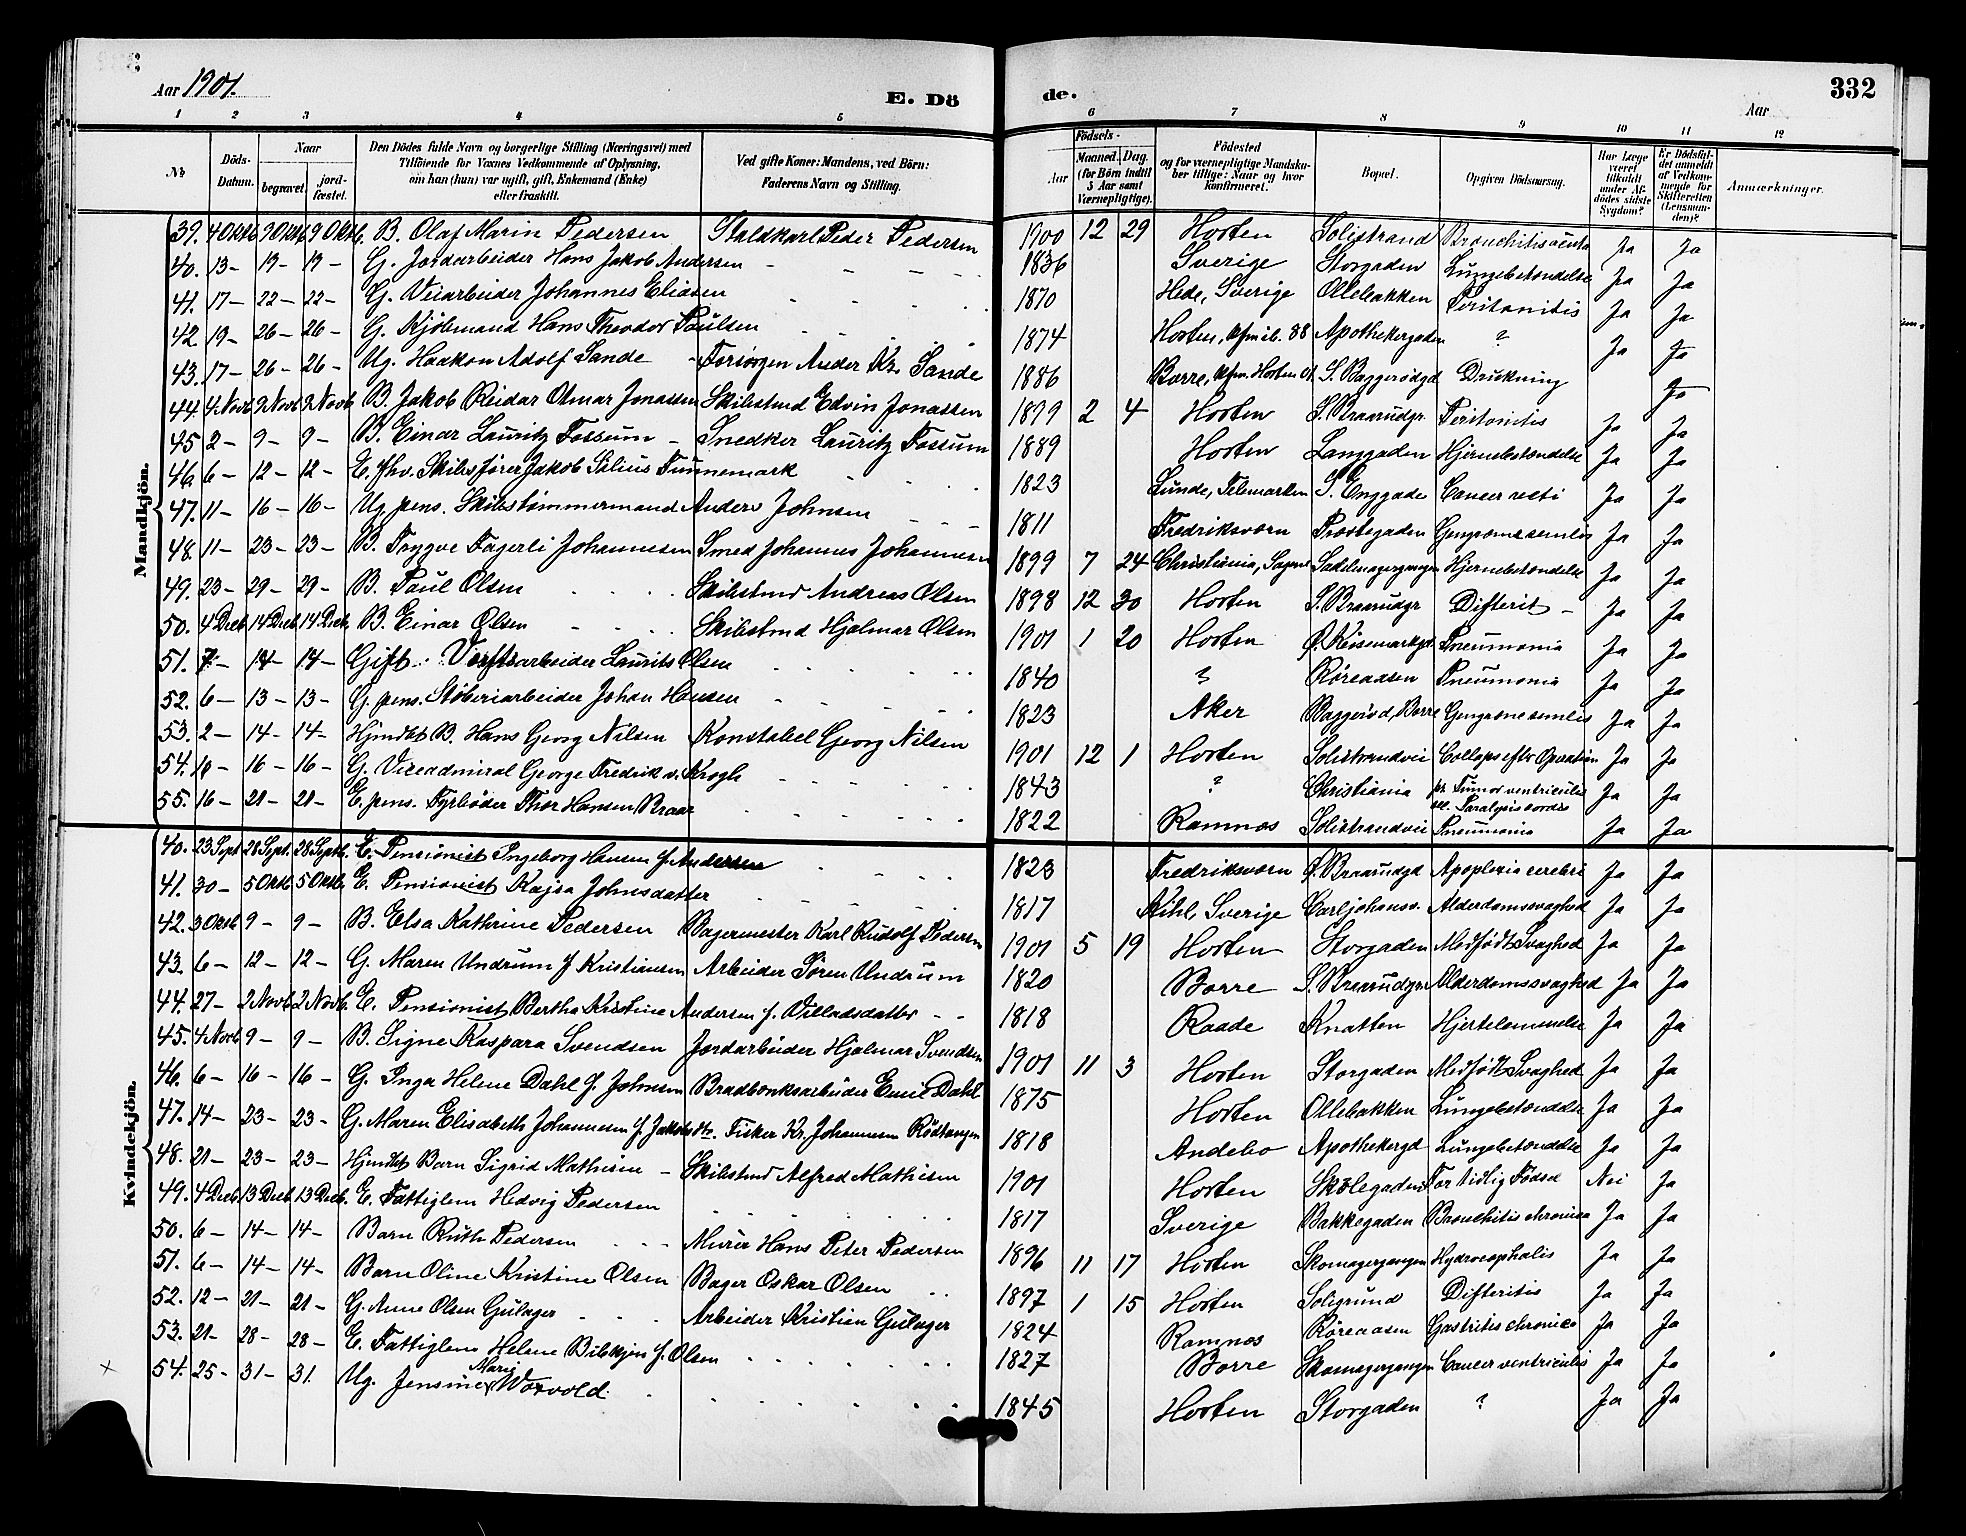 Aar 1901.
E. Dö
de.
Aar
332
1 2 3 4 5 6 7 8 9 10 11 12
№ Döds-Datum. Naar begravet. jordfæstet. Den Dödes fulde Navn og borgerlige Stilling (Næringsvei) med Tilföiende for Voxnes Vedkommende af Oplysning, om han (hun) var ugift, gift, Enkemand (Enke) eller fraskilt. Ved gifte Koner: Mandens, ved Börn: Faderens Navn og Stilling. Födsels- Aar Maaned. Dag. (for Börn indtil 5 Aar samt Værnepligtige). Födested og for værnepligtige Mandskaber tillige: Naar og hvor konfirmeret. Bopæl. Opgiven Dödsaarsag. Har Læge været tilkaldt under Afdödes sidste Sygdom? Er Dödsfaldet anmeldt af Vedkommende for Skifteretten (Lensmanden)? Anmærkninger.
Mandkjön.
39. 4 Oktb. 9 Oktb. 9 Oktb. B. Olaf Marin Pedersen Staldkarl Peder Pedersen 1900 12 29 Horten Solistrand Bronchitis acuta Ja Ja
40. 13- 19- 19- G. Jordarbeider Hans Jakob Andersen 1836 Sverige Storgaden Lungebetændelse Ja Ja
41. 17- 22- 22- G. Veiarbeider Johannes Eliasen 1870 Hede, Sverige Ollebakken Peritonitis Ja Ja
42. 19- 26- 26- G. Kjölmand Hans Theodor Paulsen 1874 Horten, 88 Apothekergaden ? Ja Ja
43. 17- 26- 26- Ug. Haakon Adolf Sande Anders Kr. Sande 1886 Borre, Horten S. Baggerödgd Drukning Ja
44. 4 Novb 9 Novb 9 Novb B. Jakob Reidar Otmar Jonassen Skibstmd Edvin Jonassen 1899 2 4 Horten S. Braarudgr. Peritonitis Ja Ja
45 2- 9- 9- B. Einar Lauritz Fossum - Snedker Lauritz Fossum 1889 Horten Langgaden Hjernebetændelse Ja Ja
46 6- 12- 12- E. fhv. Skibsfører Jakob Silius Tunnemark 1823 Lunde, Telemarken S. Enggade Cancer recti Ja Ja
47. 11- 16- 16- Ug. pens. Skibstømmermand Anders Johnsen 1811 Fredriksværn Prostegaden Gangræna senilis Ja Ja
48. 11- 23- 23- B. Trygve Fagerli Johannesen Smed Johannes Johannesen 1899 7 24 Christiania, Sagene Sadelmagergangen Hjernebetændelse Ja Ja
49. 23- 29- 29- B. Paul Olsen Skibstmd Andreas Olsen 1898 12 30 Horten S. Braarudgr Difterit - Ja Ja
50. 4 Decb 14 Decb. 14 Decb. B. Einar Olsen Skibstmd Hjalmar Olsen 1901 1 20 Horten Ø. Keisemarkgd. Pneumonia Ja Ja
51. 7- 14- 14- Gift. Verftsarbeider Laurits Olsen 1840 ? Røreaasen Pneumonia Ja Ja
52. 6- 13- 13- G. pens. Støberiarbeider Johan Hansen 1823 Aker Baggerød, Borre Gangræne senilis Ja Ja
53. 2- 14- 14- Hjmdbt B. Hans Georg Nilsen Konstabel Georg Nilsen 1901 12 1 Horten Solistrandvei Collaps efter Operation Ja Ja
54. 10- 16- 16- G. Viceadmiral George Fredrik v. Krogh 1843 ? Christiania Tumor ventriculi Paralysis cordis Ja Ja
55. 16- 21- 21- E. pens. Fyrbøder Thor Hansen Braar 1822 Ramnæs Solistrandvei Pneumonia Ja Ja
Kvindekjön.
40. 23 Sept 28 Sept. 28 Septb. E. Pensionist Ingeborg Hansen f. Andersen 1823 Fredriksværn Ø. Braarudgd Apoplexia cerebri Ja Ja
41. 30- 5 Oktb. 5 Oktb. E. Pensionist Kajsa Johnsdatter 1817 Kihl, Sverige Carljohansv. Alderdomssvaghed Ja Ja
42. 3 Oktb 9- 9- B. Elsa Kathrine Pedersen Bagermester Karl Rudolf Pedersen 1901 5 19 Horten Storgaden Medfødt Svaghed Ja Ja
43. 6- 12- 12- G. Maren Undrum f Kristiansen Arbeider Søren Undrum 1820 Borre S. Braarudgr. Alderdomssvaghed Ja Ja
44. 27- 2 Novb. 2 Novb. E. Pensionist Bertha Kristine Andersen f. Villadsdatter 1818 Raade Knatten Hjertelammelse Ja Ja
45. 4 Novb. 9- 9- B. Signe Kaspara Svendsen Jordarbeider Hjalmar Svendsen 1901 11 3 Horten Storgaden Medfødt Svaghed Ja Ja
46. 6- 16- 16- G. Inga Helene Dahl f. Johnsen Bradbænksarbeider Emil Dahl 1875 Horten Ollebakken Lungebetændelse Ja Ja
47. 14- 23- 23- G. Maren Elisabeth Johannesen f. Jakobsdtr. Fisker Kr. Johannesen Rödtangen 1818 Andebo Apothekergd Lungebetændelse Ja Ja
48. 21- 23- 23- Hjmdbt Barn Sigrid Mathisen - Skibstmd Alfred Mathisen 1901 Horten Skolegaden For tidlig Fødsel Nei Ja
49. 4 Decb. 13 Decb. 13 Decb. E. Fattiglem Hedvig Pedersen 1817 Sverige Bakkegaden Bronchitis chronica Ja Ja
50. 6- 14- 14- Barn Ruth Pedersen Murer Hans Peter Pedersen 1896 11 17 Horten Skomagergangen Hydrocephalis Ja Ja
51. 6- 14- 14- Barn Oline Kristine Olsen Bager Oskar Olsen 1897 1 15 Horten Soligrund Difteritis Ja Ja
52. 12- 21- 21- G. Anne Olsen Gulager Arbeider Kristian Gulager 1824 Ramnæs Røreaasen Gastritis chronica Ja Ja
53. 21- 28- 28- E. Fattiglem Helene Bilskjen f. Olsen 1827 Borre Skomagergangen Cancer ventriculis Ja Ja
54. 25- 31- 31. Ug. Jensine Marie Worvold. 1845 Horten Storgaden ? Ja Ja